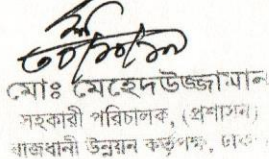 ৩০/১০/১৯
মোঃ মেহেদউজ্জামান
সহকারী পরিচালক, (প্রশাসন)
রাজধানী উন্নয়ন কর্তৃপক্ষ, ঢাকা